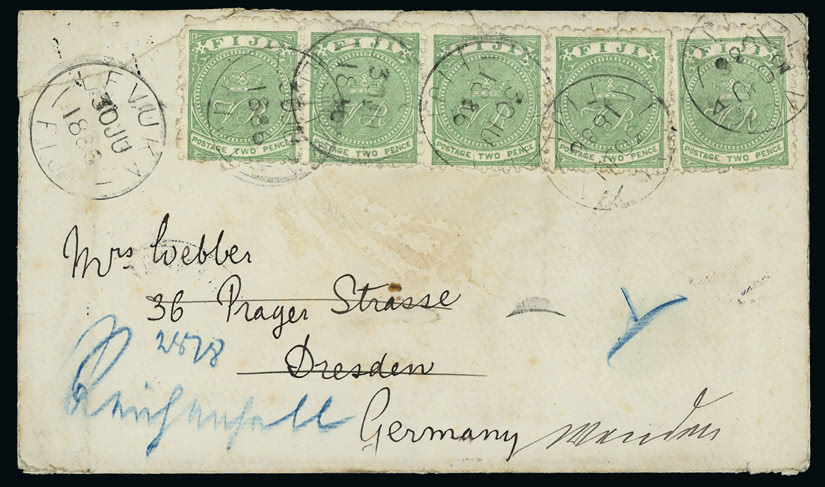 FIJI FIJI FIJI FIJI FIJI
VR VR VR VR VR
POSTAGE TWO PENCE POSTAGE TWO PENCE POSTAGE TWO PENCE POSTAGE TWO PENCE POSTAGE TWO PENCE
LEVUKA
30 JU
1886
FIJI
Mrs Webber
36 Prager Strasse
2578
Dresden
Reichenhall
Germany Wenden